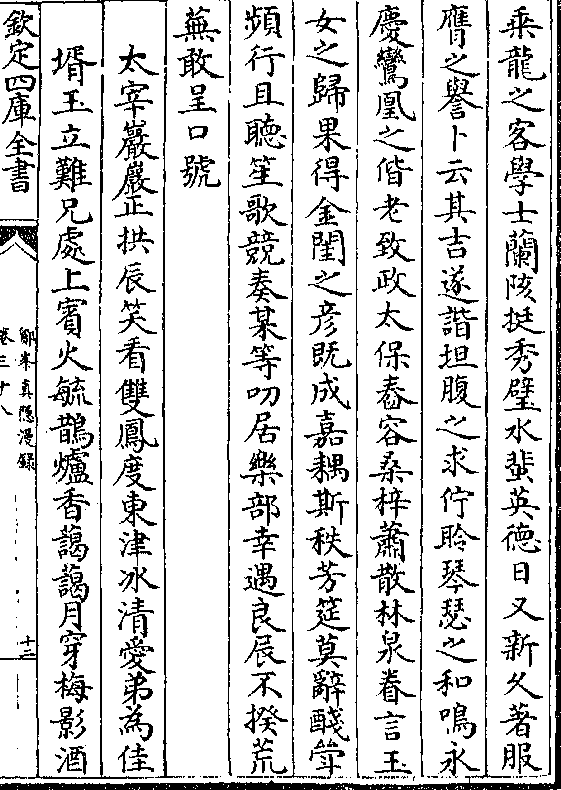 乘龍之客學士蘭陔挺秀璧水蜚英德日又新久著服
膺之譽卜云其吉遂諧坦腹之求佇聆琴瑟之和鳴永
慶鸞凰之偕老致政太保春容桑梓蕭散林泉眷言玉
女之歸果得金閨之彦既成嘉耦斯秩芳筵莫辭醆斝
頻行且聽笙歌競奏某等叨居樂部幸遇良辰不揆荒
蕪敢呈口號
太宰巖巖正拱辰笑看雙鳳度東津冰清愛弟為佳
壻玉立難兄處上賓火毓鵲爐香藹藹月穿梅影酒
欽定四庫全書
鄮峯真隱漫録
卷三十八
十二